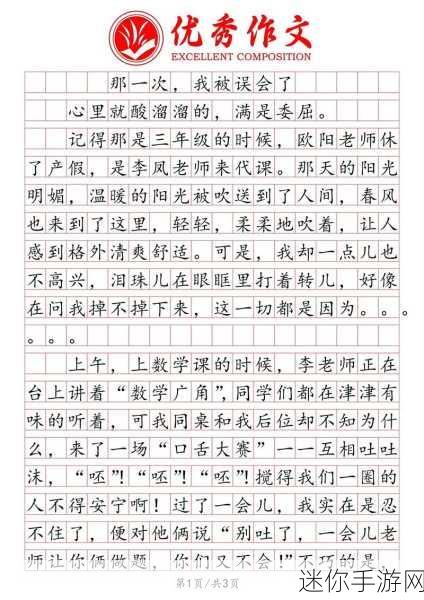 优秀作文
EXCELLENT COMPOSITION
那一次，我被误会了
心里就酸溜溜的，满是委屈。
记得那是三年级的时候，欧阳老师休
了产假，是李凤老师来代课。那天的阳光
明媚，温暖的阳光被吹送到了人间，春风
也来到了这里，轻轻，柔柔地吹着，让人
感到格外清爽舒适。可是，我却一点儿也
不高兴，泪珠儿在眼眶里打着转儿，好像
在问我掉不掉下来，这一切都是因为。。。
。。。
上午，上数学课的时候，李老师正在
台上讲着“数学广角”，同学们都在津津有
味的听着，可我同桌和我后位却不知为什
么，来了一场“口舌大赛”一一互相吐吐
沫，“呸”！“呸”！“呸”！搅得我们一圈的
人不得安宁啊！过了一会儿，我实在是忍
不住了，便对他俩说“别吐了，一会儿老
师让你俩做题，你们又不会！”不巧的是，
第1页/共3页
迷你手游网